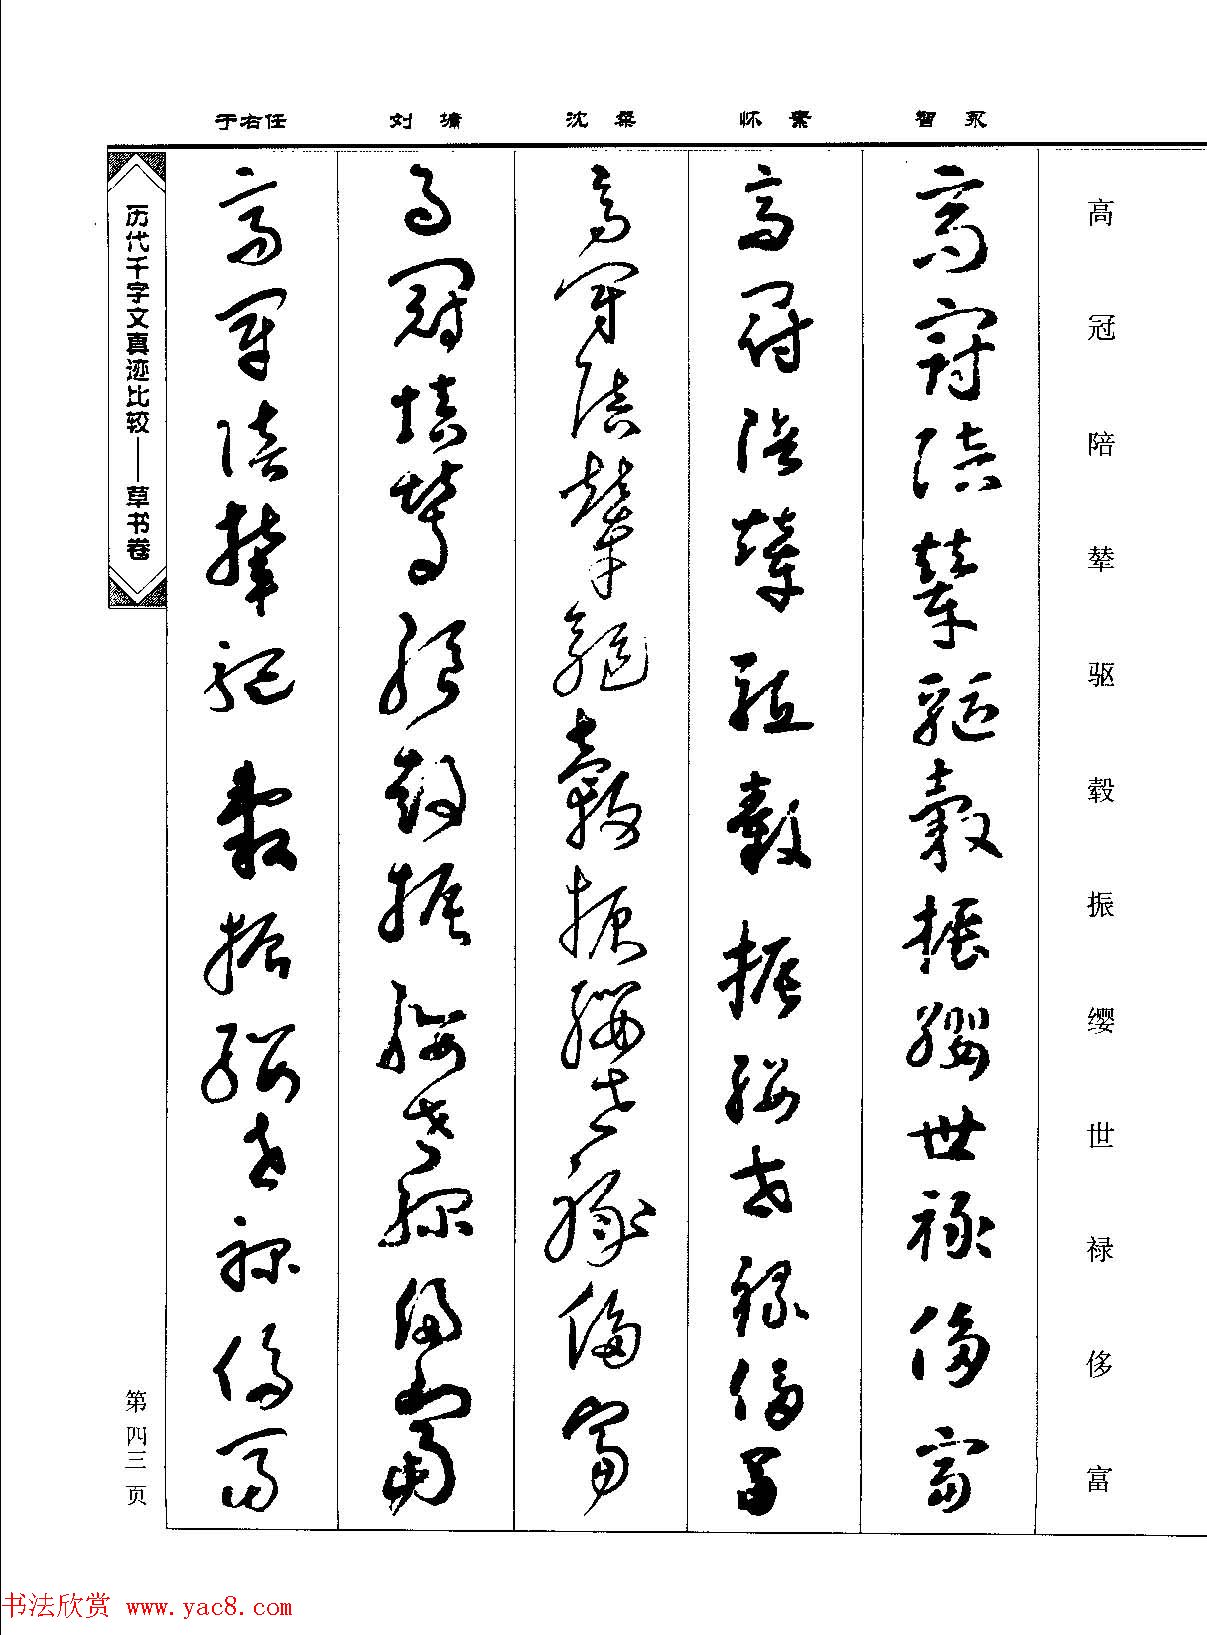 于右任 刘墉 沈粲 怀素 智永
高冠陪辇驱毂振缨世禄侈富
高冠陪辇驱毂振缨世禄侈富
高冠陪辇驱毂振缨世禄侈富
高冠陪辇驱毂振缨世禄侈富
高冠陪辇驱毂振缨世禄侈富
高冠陪辇驱毂振缨世禄侈富
历代千字文真迹比较——草书卷
第四三页
书法欣赏 www.yac8.com